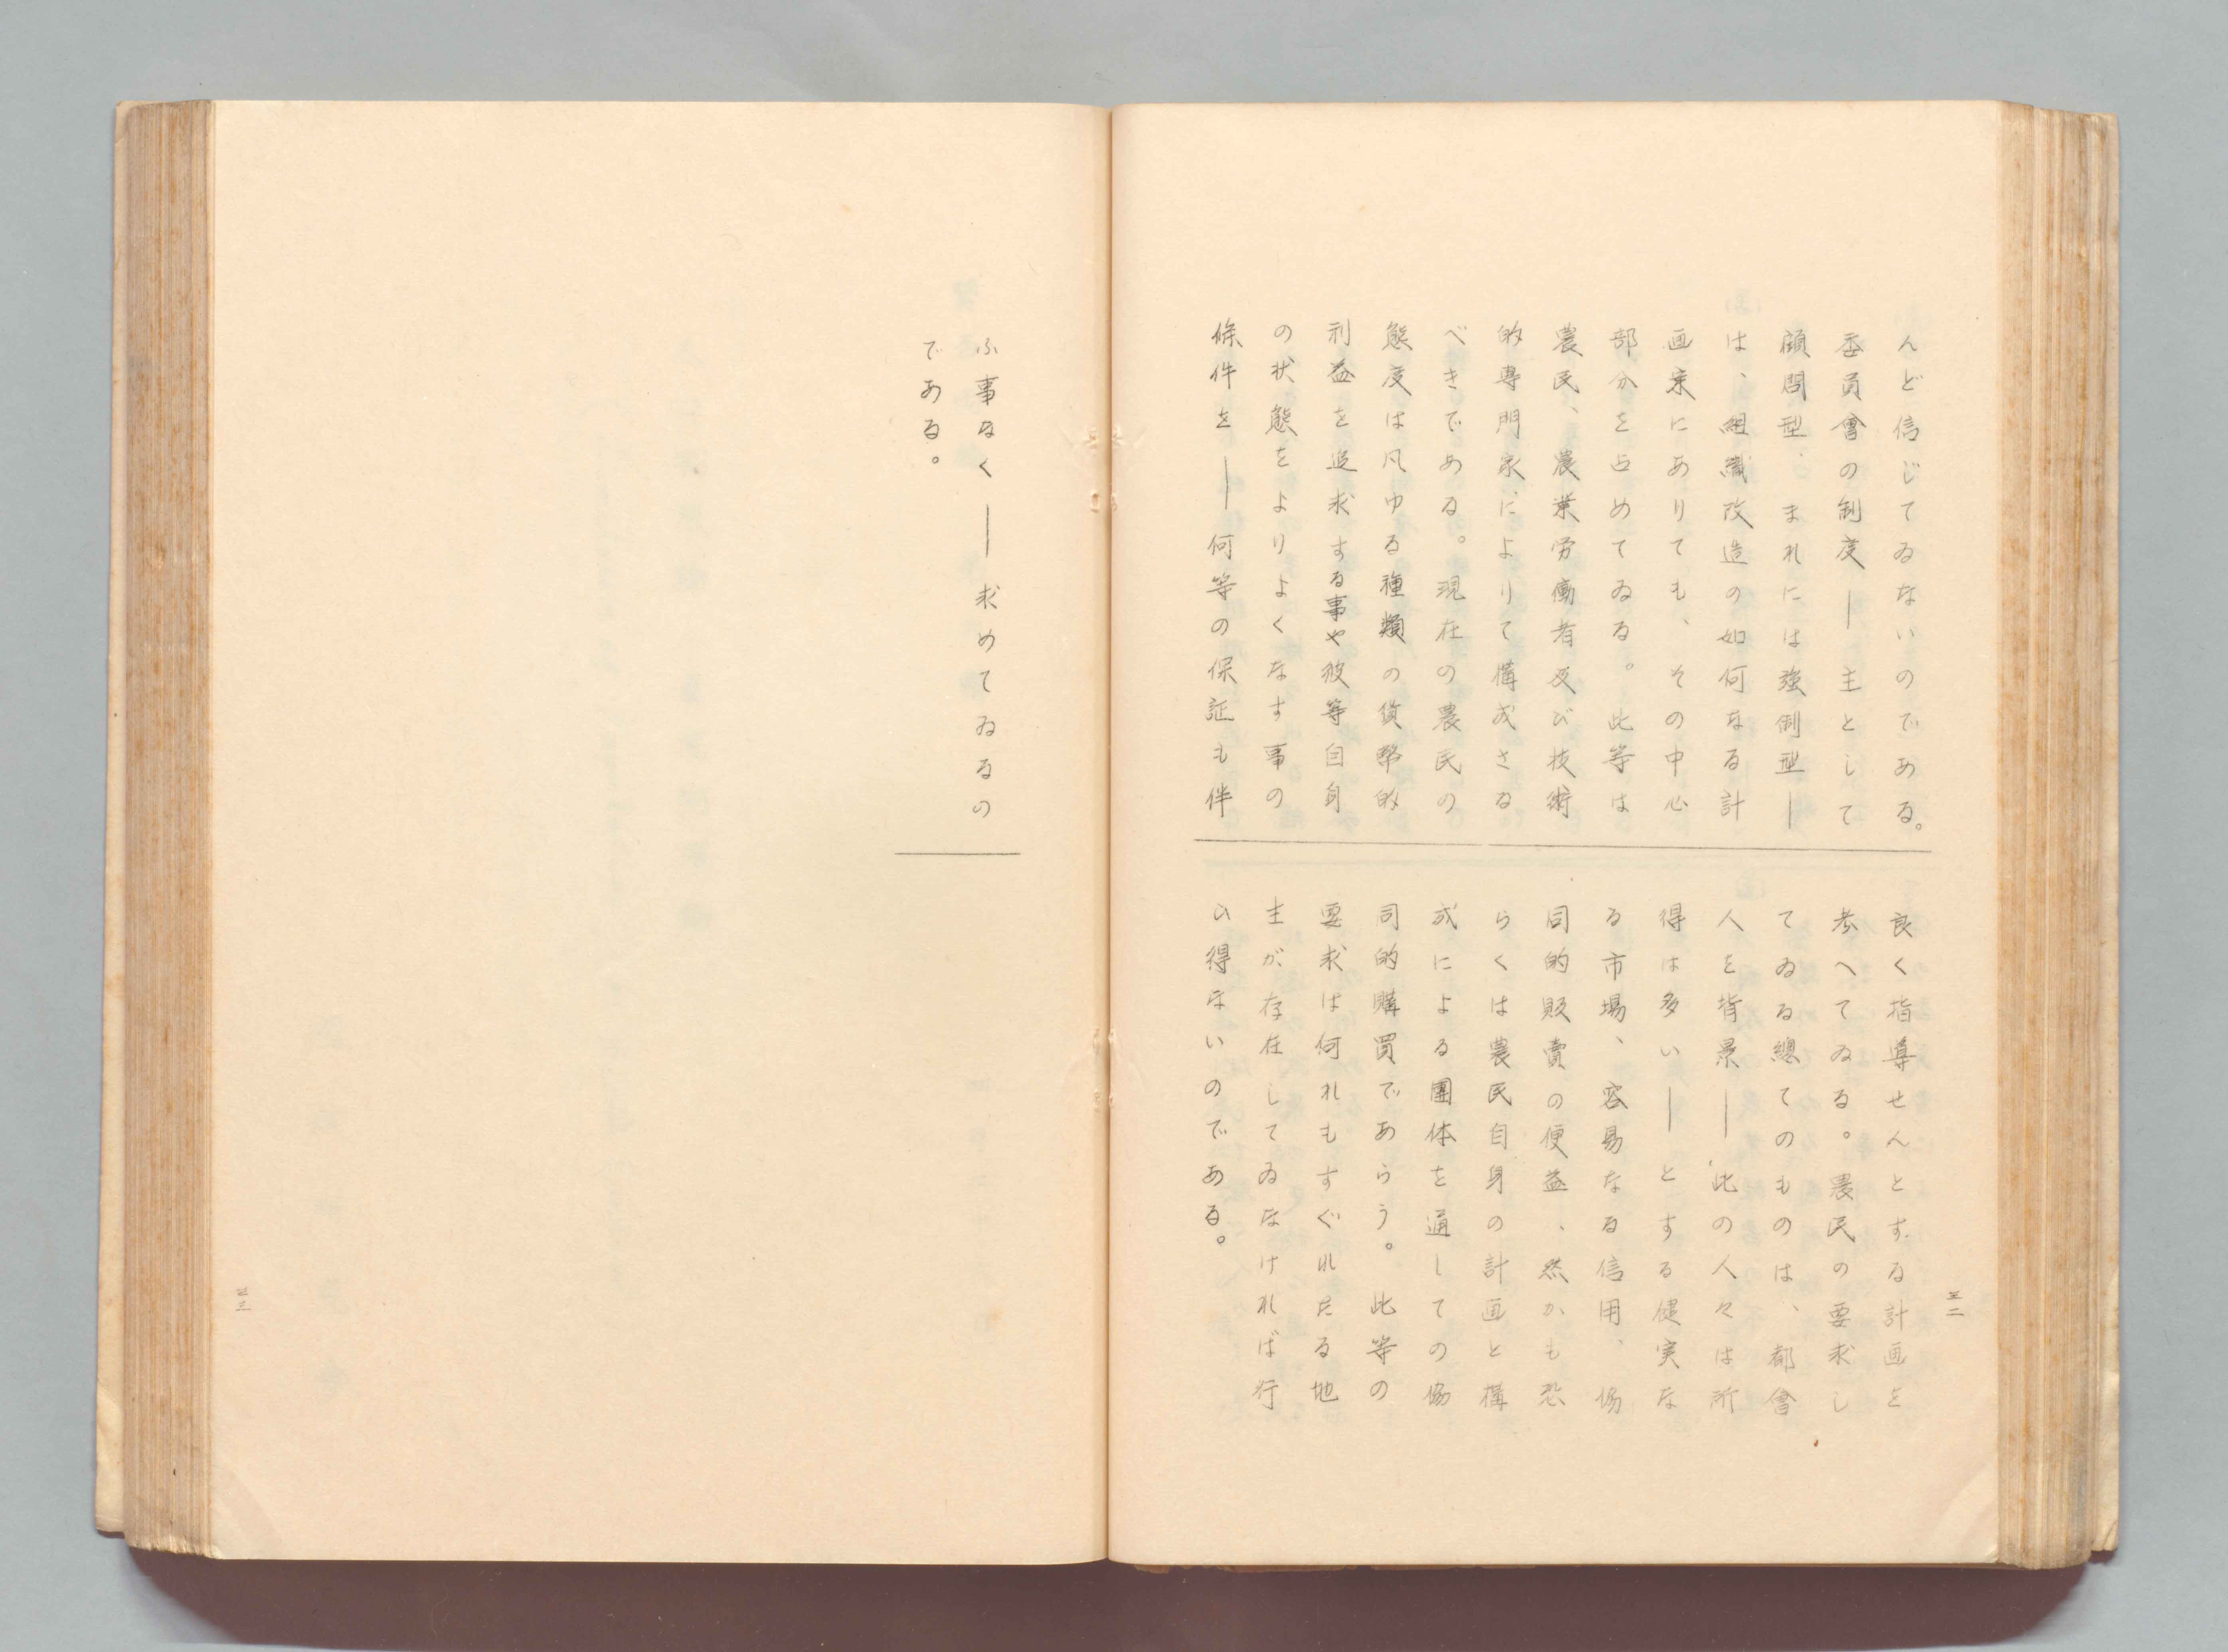 んど信じてゐないのである。
委員會の制度―主として
顧問型、まれには強制型―
は、組織改造の如何なる計
画案にありても、その中心
部分を占めてゐる。此等は
農民、農業労働者及び技術
的専門家によりて構成さる
べきである。現在の農民の
態度は凡ゆる種類の貨幣的
利益を追求する事や彼等自身
の状態をよりよくなす事の
條件を―何等の保証も伴
良く指導せんとする計画を
考へてゐる。農民の要求し
てゐる總てのものは、都會
人を背景―此の人々は所
得は多い―とする健実な
る市場、容易なる信用、協
同的販賣の便益、然かも恐
らくは農民自身の計画と構
成による團体を通しての協
同的購買であらう。此等の
要求は何れもすぐれたる地
主が存在してゐなければ行
ひ得ないのである。
三二
ふ事なく―求めてゐるの
である。
三三